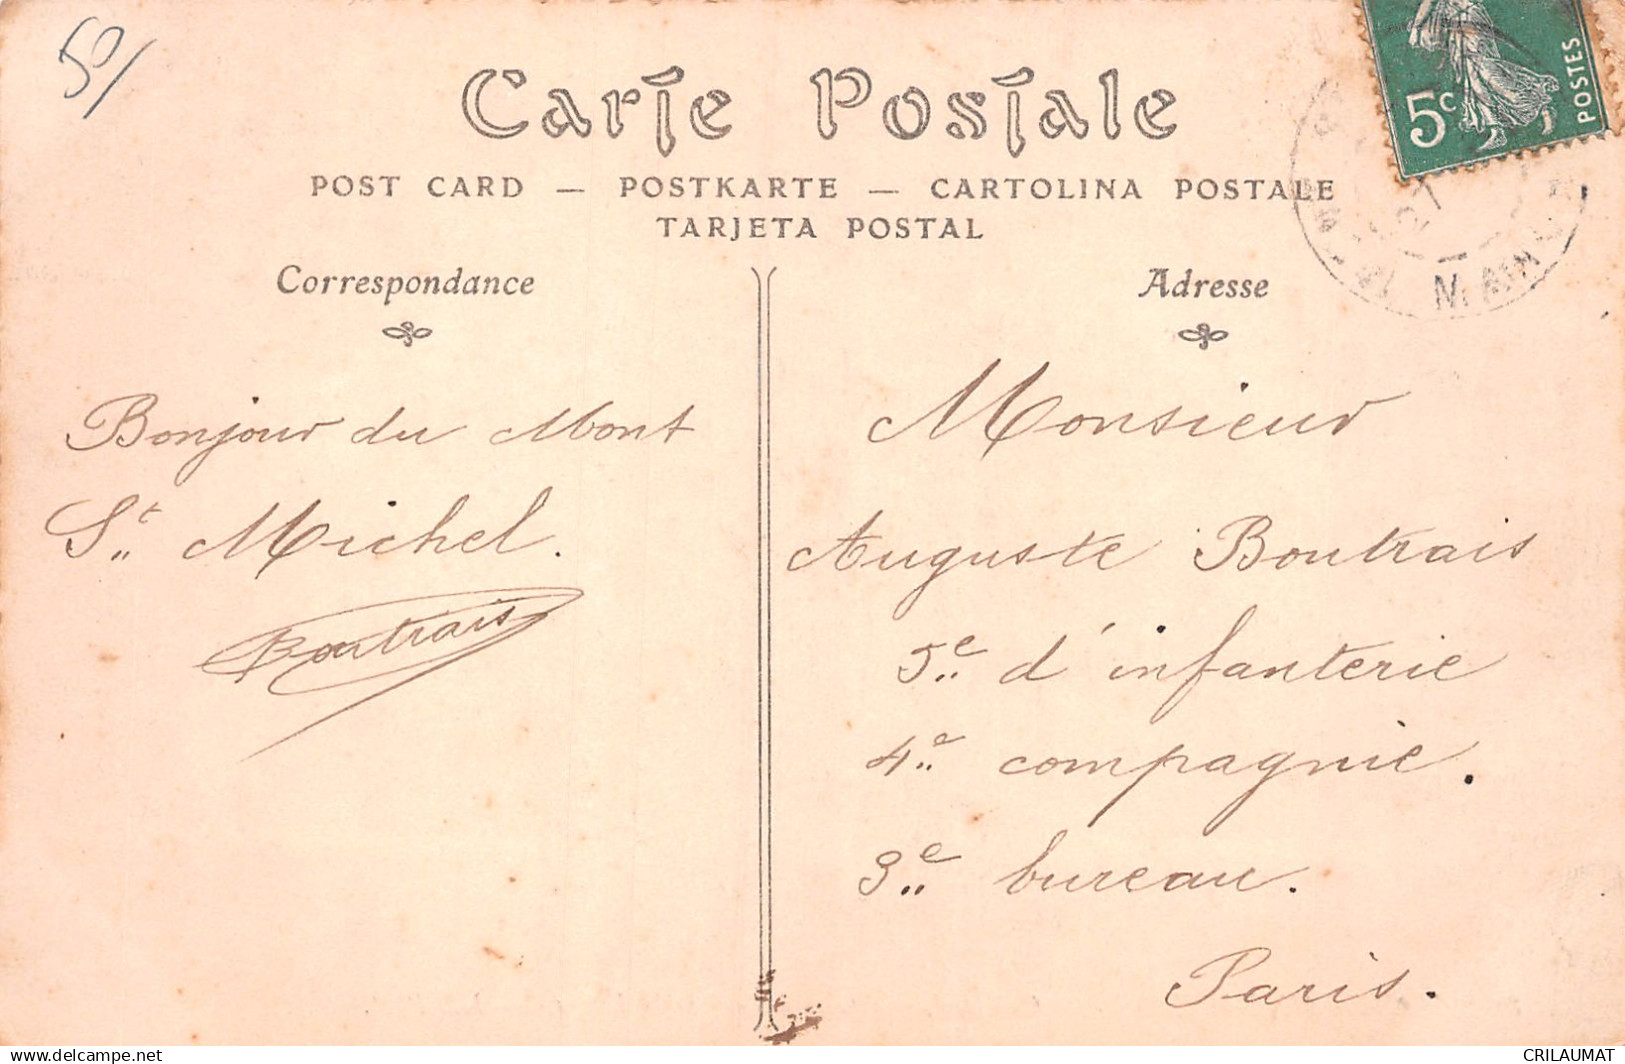 50/
Carte Postale
POST CARD — POSTKARTE — CARTOLINA POSTALE
TARJETA POSTAL
5c POSTES
Correspondance
Bonjour du Mont
St Michel.
Boutrais
Adresse
Monsieur
Auguste Boutrais
5e d'infanterie
4e compagnie.
3e bureau.
Paris.
www.delcampe.net
CRILAUMAT